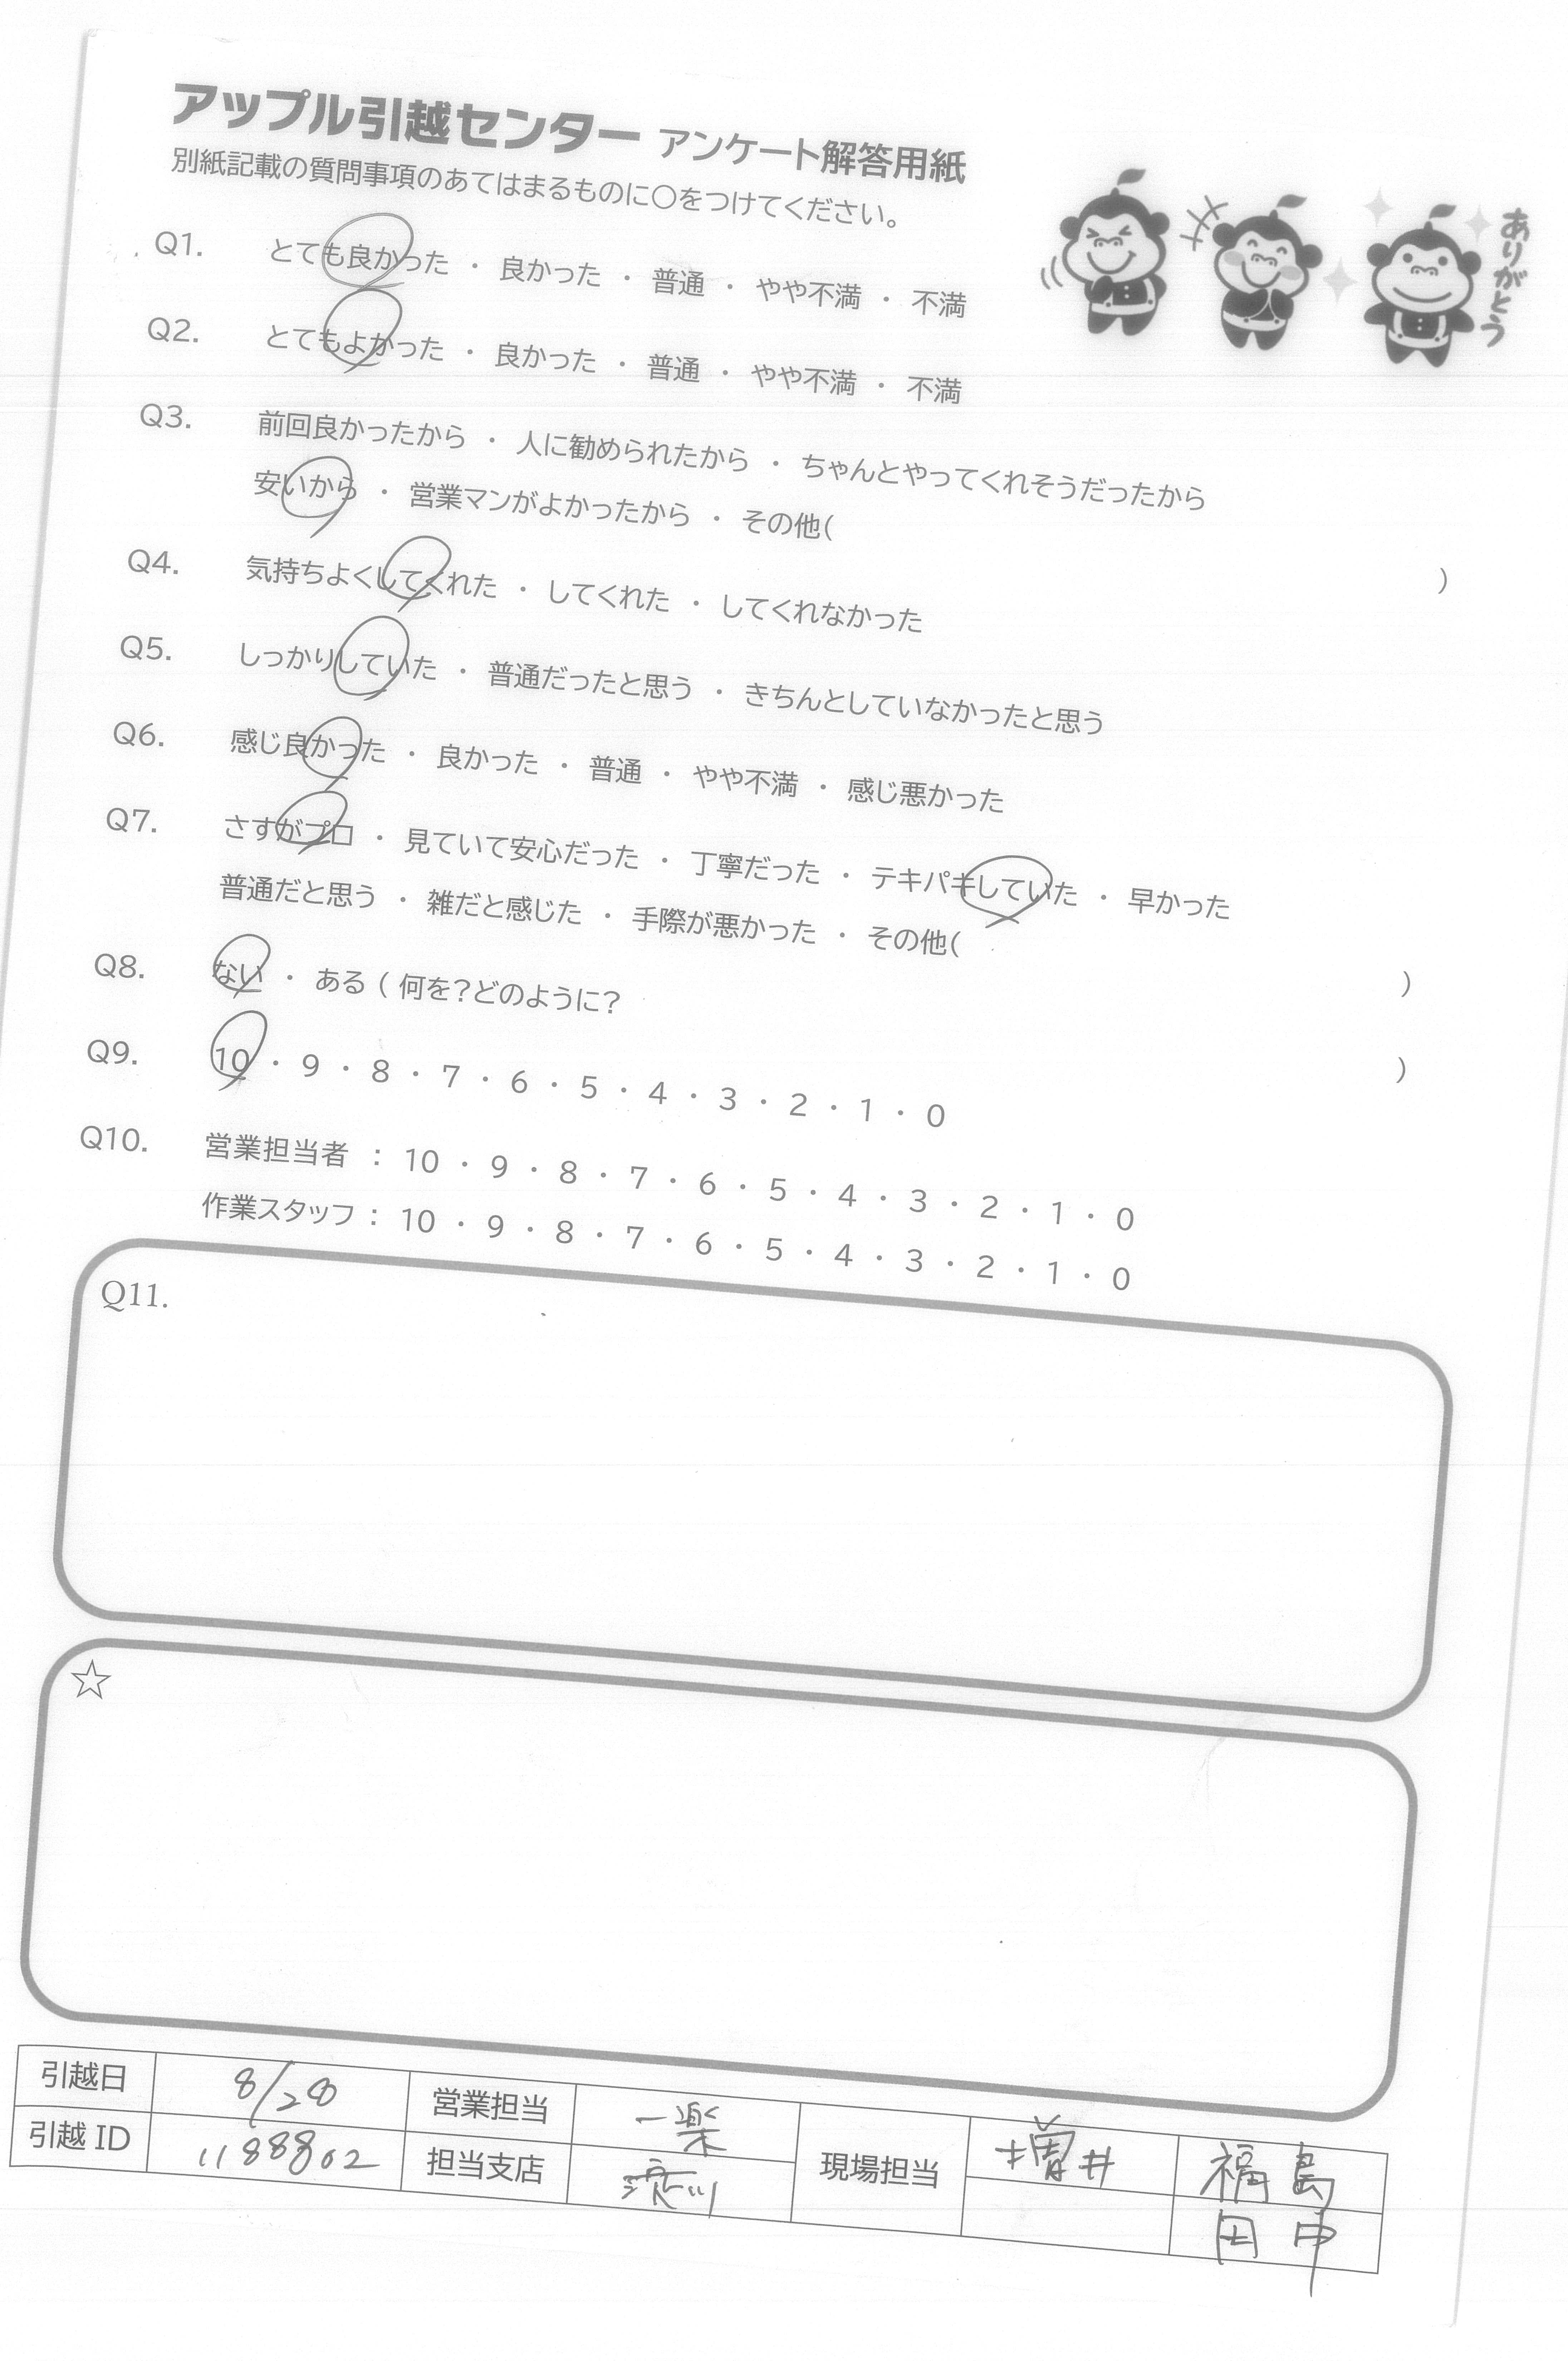 アップル引越センター アンケート解答用紙
別紙記載の質問事項のあてはまるものに〇をつけてください。
ありがとう
Q1. とても良かった ・ 良かった ・ 普通 ・ やや不満 ・ 不満
Q2. とてもよかった ・ 良かった ・ 普通 ・ やや不満 ・ 不満
Q3. 前回良かったから ・ 人に勧められたから ・ ちゃんとやってくれそうだったから
安いから ・ 営業マンがよかったから ・ その他( )
Q4. 気持ちよくしてくれた ・ してくれた ・ してくれなかった
Q5. しっかりしていた ・ 普通だったと思う ・ きちんとしていなかったと思う
Q6. 感じ良かった ・ 良かった ・ 普通 ・ やや不満 ・ 感じ悪かった
Q7. さすがプロ ・ 見ていて安心だった ・ 丁寧だった ・ テキパキしていた ・ 早かった
普通だと思う ・ 雑だと感じた ・ 手際が悪かった ・ その他( )
Q8. ない ・ ある ( 何を?どのように? )
Q9. 10 ・ 9 ・ 8 ・ 7 ・ 6 ・ 5 ・ 4 ・ 3 ・ 2 ・ 1 ・ 0
Q10. 営業担当者 : 10 ・ 9 ・ 8 ・ 7 ・ 6 ・ 5 ・ 4 ・ 3 ・ 2 ・ 1 ・ 0
作業スタッフ : 10 ・ 9 ・ 8 ・ 7 ・ 6 ・ 5 ・ 4 ・ 3 ・ 2 ・ 1 ・ 0
Q11.
☆
引越日 8/28 営業担当 一楽 現場担当 増井 福島
引越 ID 1188802 担当支店 田中